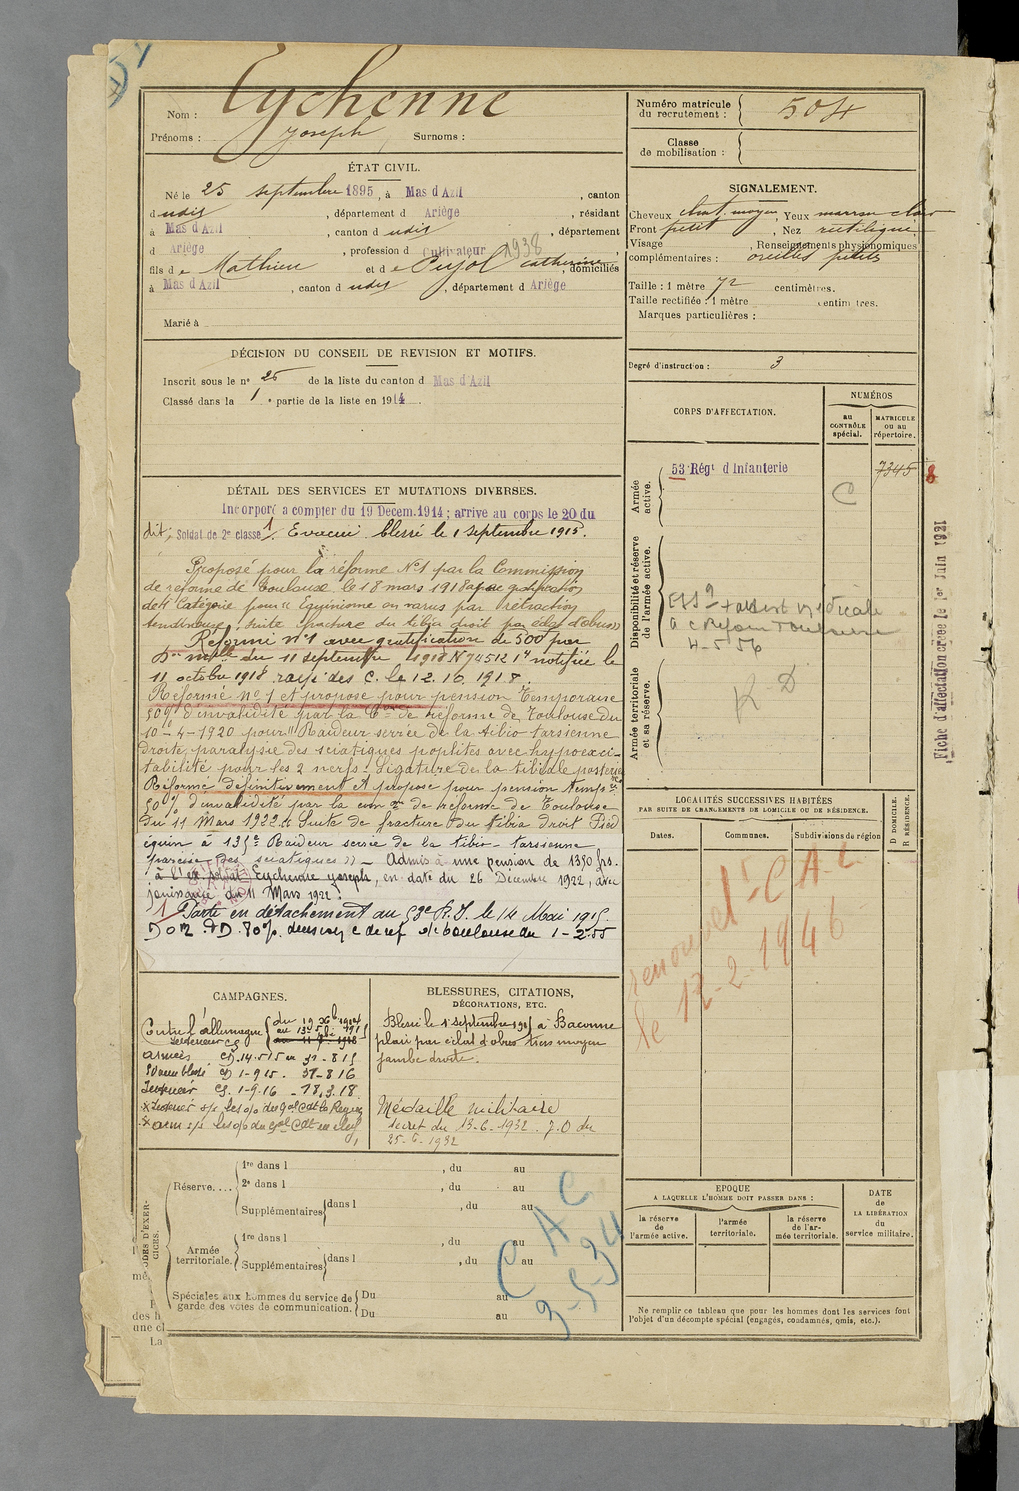 Nom : Eychenne
Prénoms : Joseph Surnoms :
ÉTAT CIVIL.
Né le 25 septembre 1895, à Mas d'Azil, canton
dudit, département d Ariège, résidant
à Mas d'Azil, canton d udit, département
d Ariège, profession d Cultivateur 1938
fils de Mathieu et de Pujol Catherine, domiciliés
à Mas d'Azil, canton d udit, département d Ariège
Marié à
DÉCISION DU CONSEIL DE REVISION ET MOTIFS.
Inscrit sous le n° 26 de la liste du canton d Mas d'Azil
Classé dans la 1e partie de la liste en 1914.
DÉTAIL DES SERVICES ET MUTATIONS DIVERSES.
Incorporé a compter du 19 Decem. 1914 ; arrive au corps le 20 du
dit, Soldat de 2e classe 1. Evacué blessé le 1 septembre 1915.
Proposé pour la réforme N°1 par la Commission
de réforme de Toulouse le 18 mars 1918 avec gratification
de 4e Catégorie pour "Equinisme en varus par rétraction
tendineuse, suite fracture du tibia droit par éclat d'obus"
Réformé n°1 avec gratification de 500 par
Don mlle du 11 septembre 1918 N° 74512 14 notifiée le
11 octobre 1918 rayé des C. le 12.10.1918.
Réformé N°1 et proposé pour pension Temporaire
50% d'invalidité par la Con de réforme de Toulouse du
10-4-1920 pour "Raideur serrée de la tibio tarsienne
droite, paralysie des sciatiques poplités avec hypoexci-
tabilité pour les 2 nerfs. Ligature de la tibiale postérie
Réformé définitivement et proposé pour pension temp.re
50% d'invalidité par la com on de réforme de Toulouse
du 11 Mars 1922 "Suite de fracture du tibia droit Pied
équin à 135° Raideur serrée de la tibio-tarsienne
parésie des sciatiques" - Admis à une pension de 1350 frs.
à l'ex soldat Eychenne Joseph, en date du 26 Décembre 1922, avec
jouissance du 11 Mars 1922.
1 Parti en détachement au 53e R.I. le 14 Mai 1915.
D.D. 80% de Toulouse du 1-2-55
CAMPAGNES.
Contre l'Allemagne du 19 Xbre 1914
Intérieur CS
armées CD. 14.5.15 au 31-8 15
Evac blessé CD 1-9 15. 31-8 16
Intérieur CS. 1-9-16 - 18.3.18
BLESSURES, CITATIONS,
DÉCORATIONS, ETC.
Blessé le 1 septembre 1915 à Baconne
plaie par éclat d'obus tiers moyen
jambe droite.
Médaille militaire
décret du 13-6-1932. J.O du
25-6-1932
Réserve....
1re dans l , du au
2e dans l , du au
Supplémentaires dans l , du au
Armée territoriale.
1re dans l , du au
Supplémentaires dans l , du au
Spéciales aux hommes du service de garde des voies de communication.
Du au
Du au
CAC
3-5-34
Numéro matricule du recrutement : 504
Classe de mobilisation :
SIGNALEMENT.
Cheveux chat. moyen, Yeux marron clair
Front petit, Nez rectiligne
Visage , Renseignements physionomiques
complémentaires : oreilles petites
Taille : 1 mètre 72 centimètres.
Taille rectifiée : 1 mètre centimètres.
Marques particulières :
Degré d'instruction : 3
CORPS D'AFFECTATION.
NUMÉROS
au CONTRÔLE spécial.
MATRICULE ou au répertoire.
Armée active.
53 Régt d'Infanterie
7345
C
8
Disponibilité et réserve de l'armée active.
4-5 56
Armée territoriale et sa réserve.
R-D
LOCALITÉS SUCCESSIVES HABITÉES
PAR SUITE DE CHANGEMENTS DE DOMICILE OU DE RÉSIDENCE.
Dates.
Communes.
Subdivisions de région
D DOMICILE.
R RÉSIDENCE.
renouvelt C A C
le 12-2-1946
EPOQUE
A LAQUELLE L'HOMME DOIT PASSER DANS :
la réserve de l'armée active.
l'armée territoriale.
la réserve de l'armée territoriale.
DATE de LA LIBÉRATION du service militaire.
Ne remplir ce tableau que pour les hommes dont les services font
l'objet d'un décompte spécial (engagés, condamnés, omis, etc.).
Fiche d'affectation créée le 1er Juin 1921